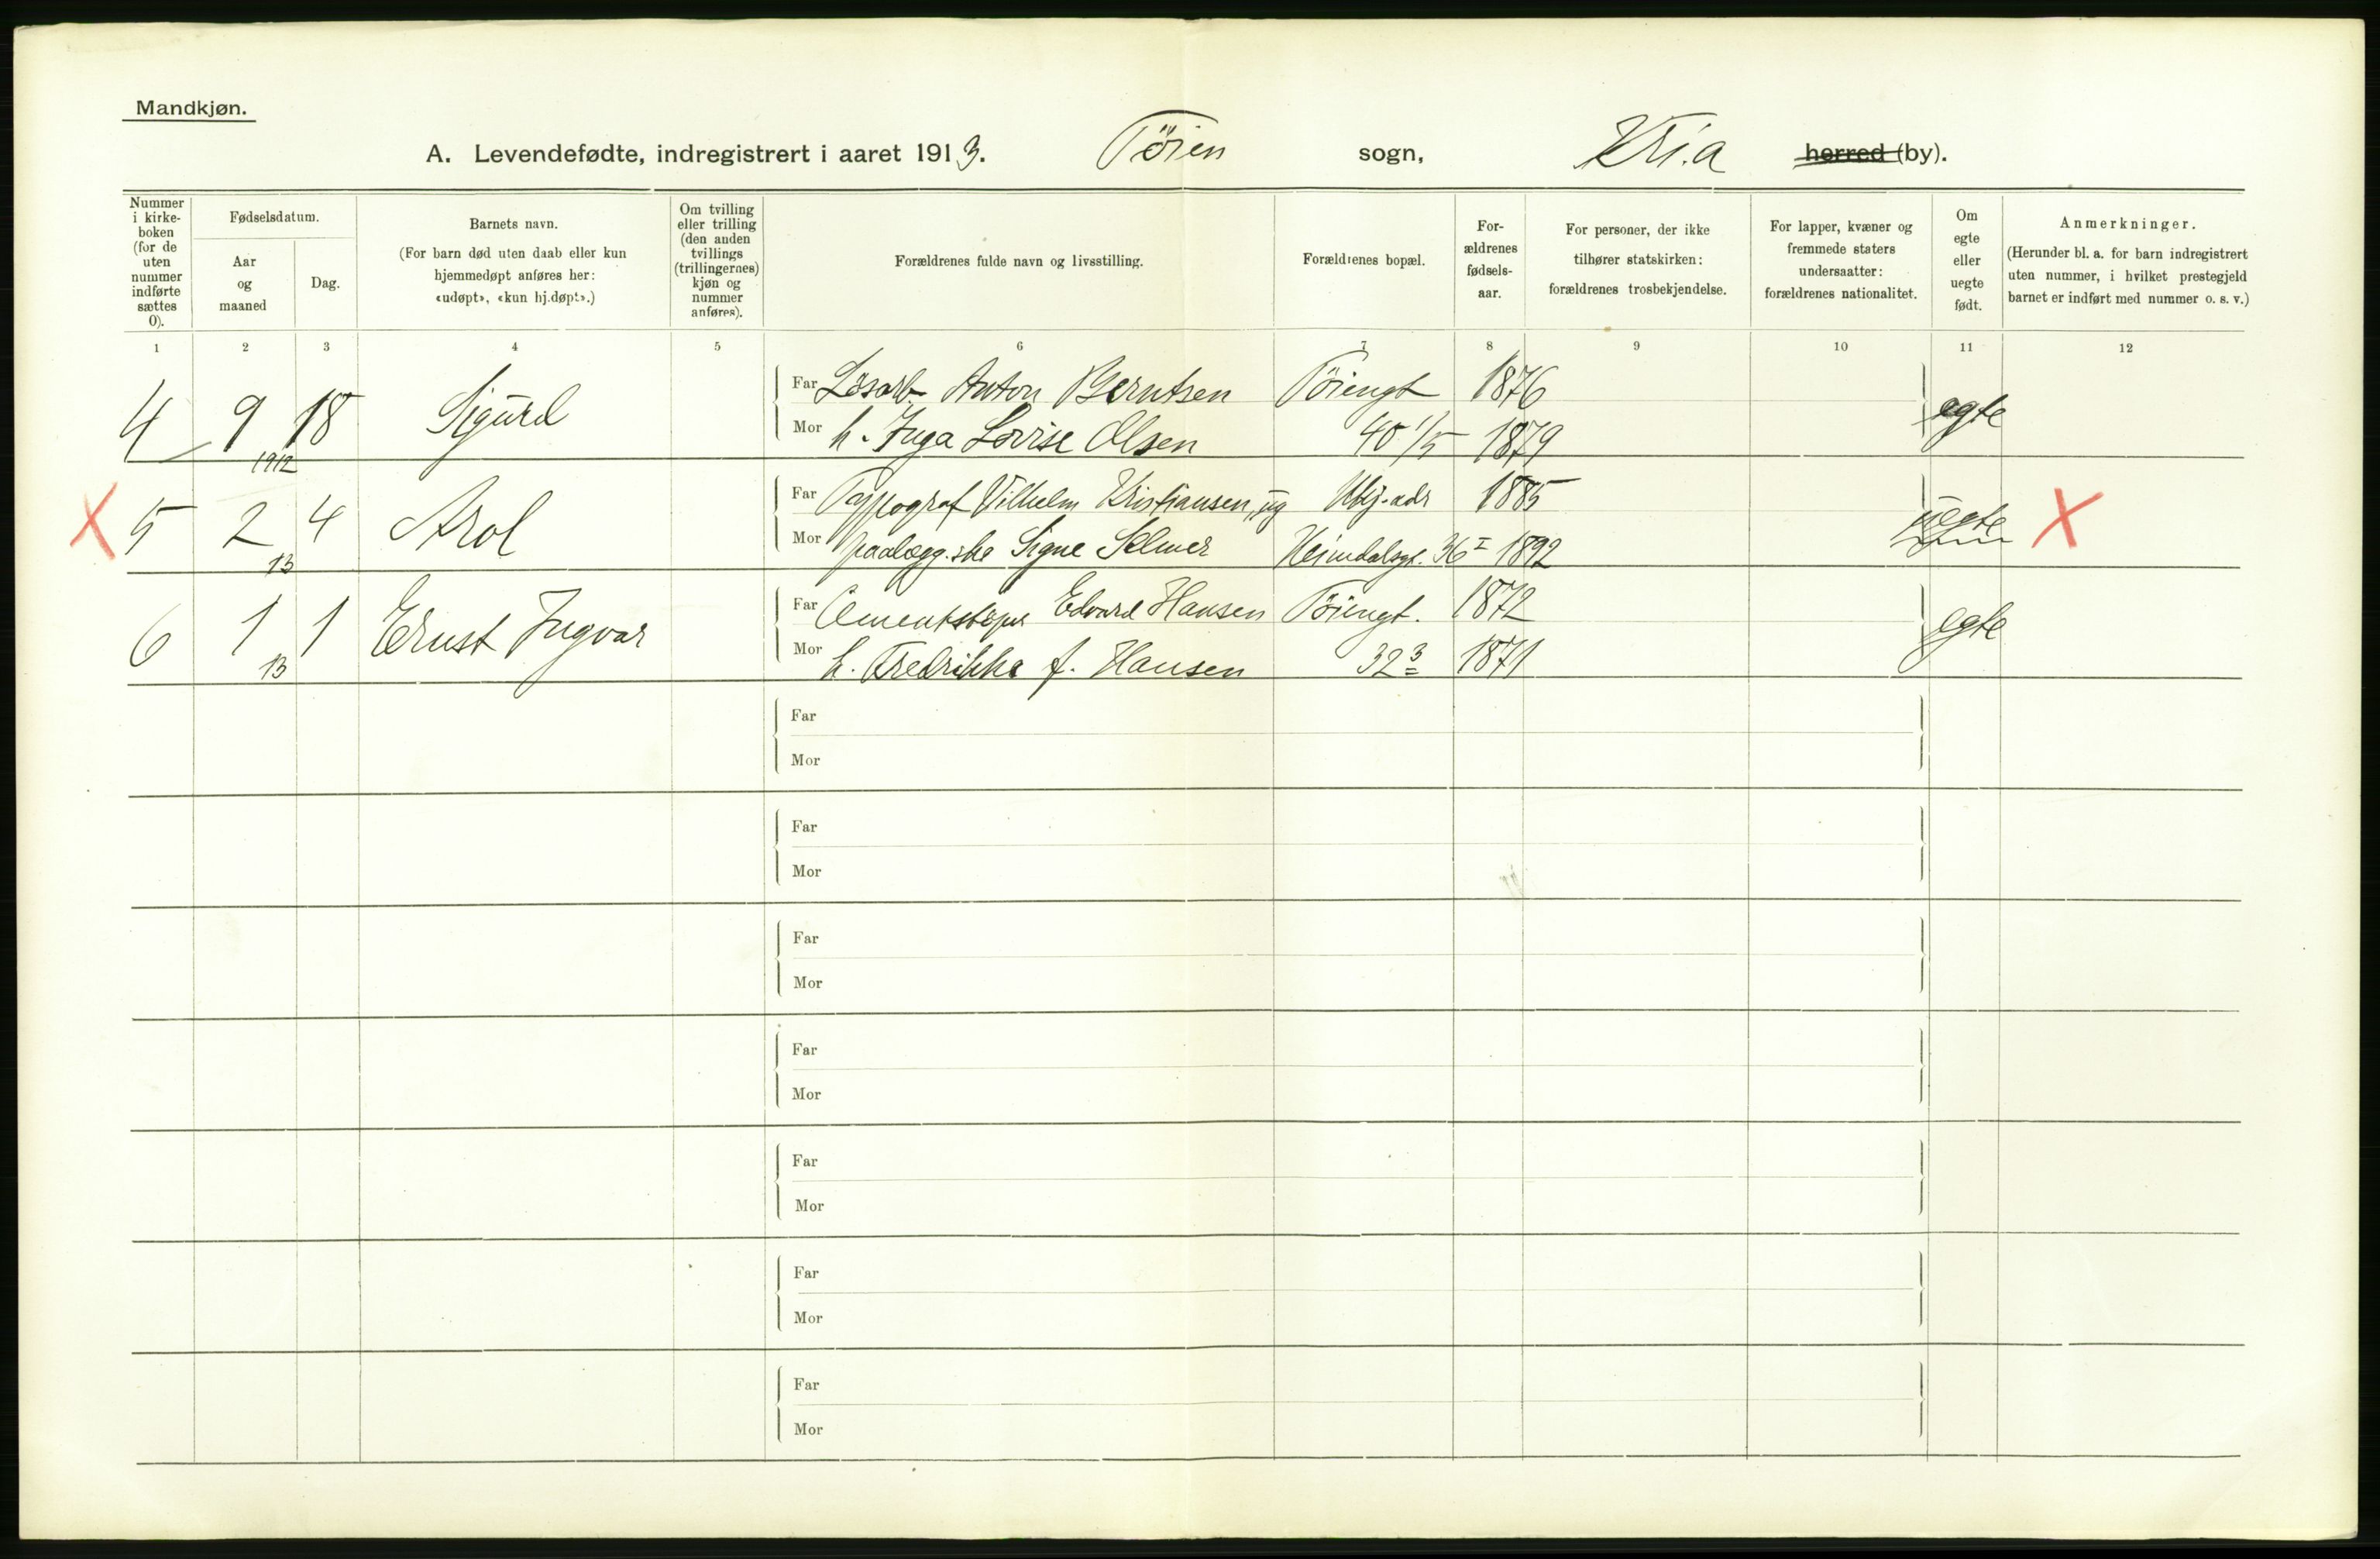 Mandkjøn.
A. Levendefødte, indregistrert i aaret 1913. Töien sogn, Kria herred (by).
Nummer i kirke- boken (for de uten nummer indførte sættes 0).
Fødselsdatum.
Aar og maaned
Dag.
Barnets navn.
(For barn død uten daab eller kun hjemmedøpt anføres her: «udøpt», «kun hj.døpt».)
Om tvilling eller trilling (den anden tvillings (trillingernes) kjøn og nummer anføres).
Forældrenes fulde navn og livsstilling.
Forældrenes bopæl.
For- ældrenes fødsels- aar.
For personer, der ikke tilhører statskirken: forældrenes trosbekjendelse.
For lapper, kvæner og fremmede staters undersaatter: forældrenes nationalitet.
Om egte eller uegte født.
Anmerkninger.
(Herunder bl. a. for barn indregistrert uten nummer, i hvilket prestegjeld barnet er indført med nummer o. s. v.)
1 2 3 4 5 6 7 8 9 10 11 12
4 9 1912 18 Sigurd Far Løsarb. Anton Berntsen Töiengt 1876 egte
Mor h. Inga Lovise Olsen 40 1/5 1879
X 5 2 13 4 Arol Far Typograf Vilhelm Kristiansen, ug Ubj. adr 1885 uegte X
Mor paalægg.ske Signe Selmer Heimdalsgt. 36 I 1892
6 1 13 1 Ernst Ingvar Far Cementstøper Edvard Hansen Töiengt. 1872 egte
Mor h. Fredrikke f. Hansen 32 3 1871
Far
Mor
Far
Mor
Far
Mor
Far
Mor
Far
Mor
Far
Mor
Far
Mor